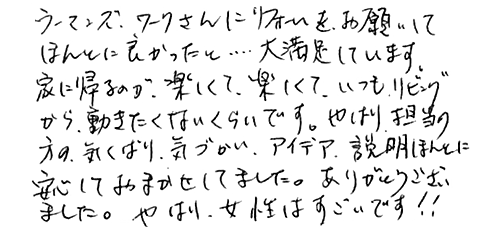 ウーマンズ.ワークさんにリフォームを.お願いして
ほんとに良かったと‥‥大満足しています。
家に帰るのが、楽しくて、楽しくて、いつも.リビング
から.動きたくないくらいです。やはり.担当の
方の.気くばり.気づかい.アイデア.説明ほんとに
安心しておまかせしてました。ありがとうござい
ました。やはり.女性はすごいです!!